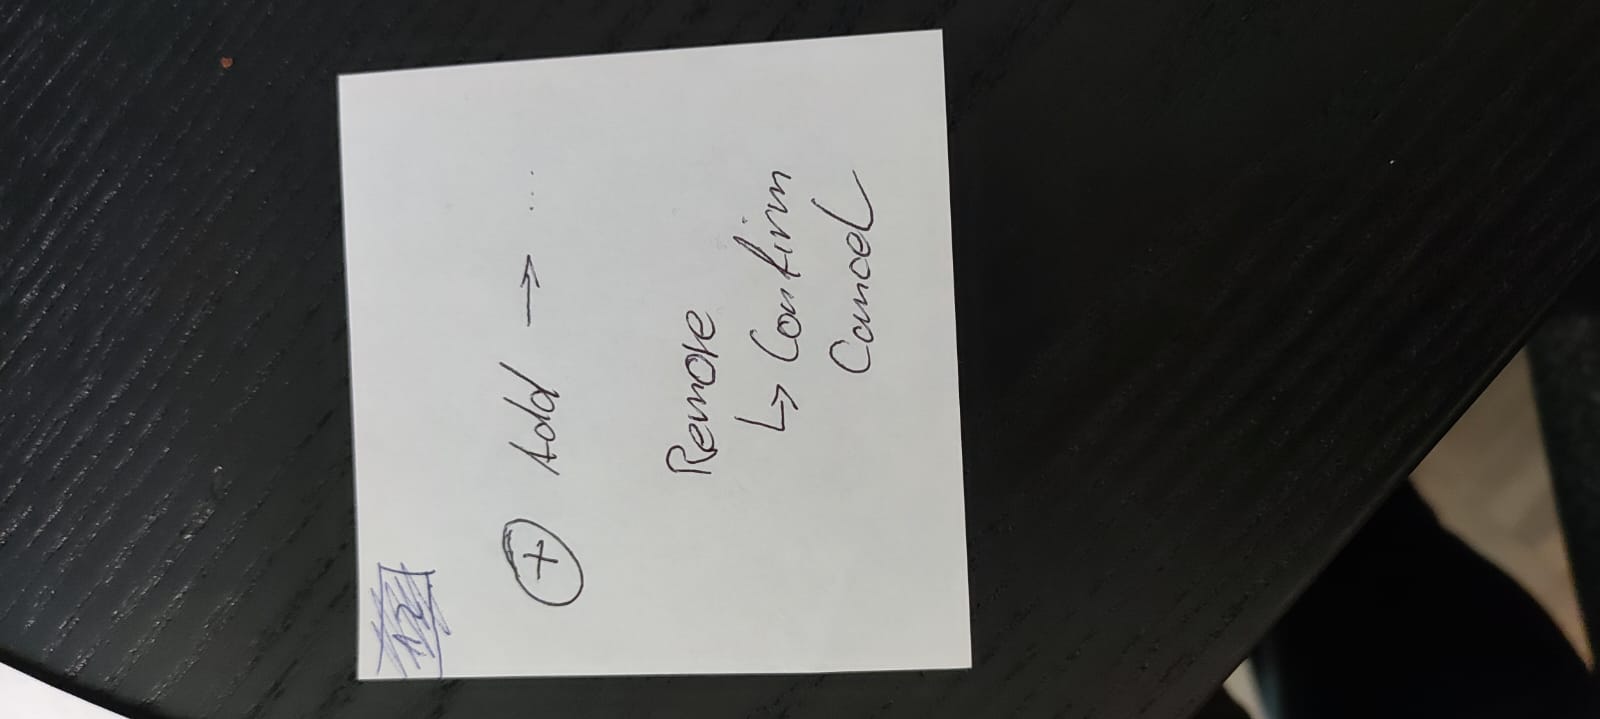 + Add → ...
Remove
↳ Confirm
Cancel